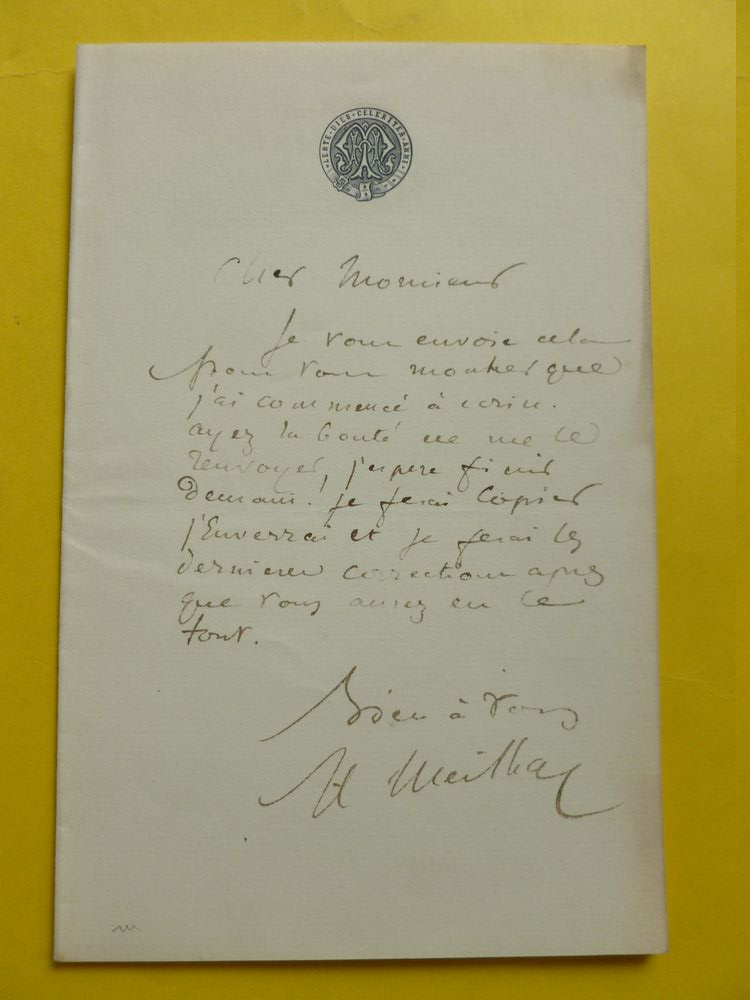 LENTE·DIES·CELERITER·ANNI
Cher Monsieur
Je vous envoie cela
pour vous montrer que
j'ai commencé à écrire.
ayez la bonté de me le
renvoyer, j'espère finir
Demain! je ferai copier
j'Enverrai et je ferai les
dernières corrections après
que vous aurez eu le
tout.
Bien à vous
H Meilhac